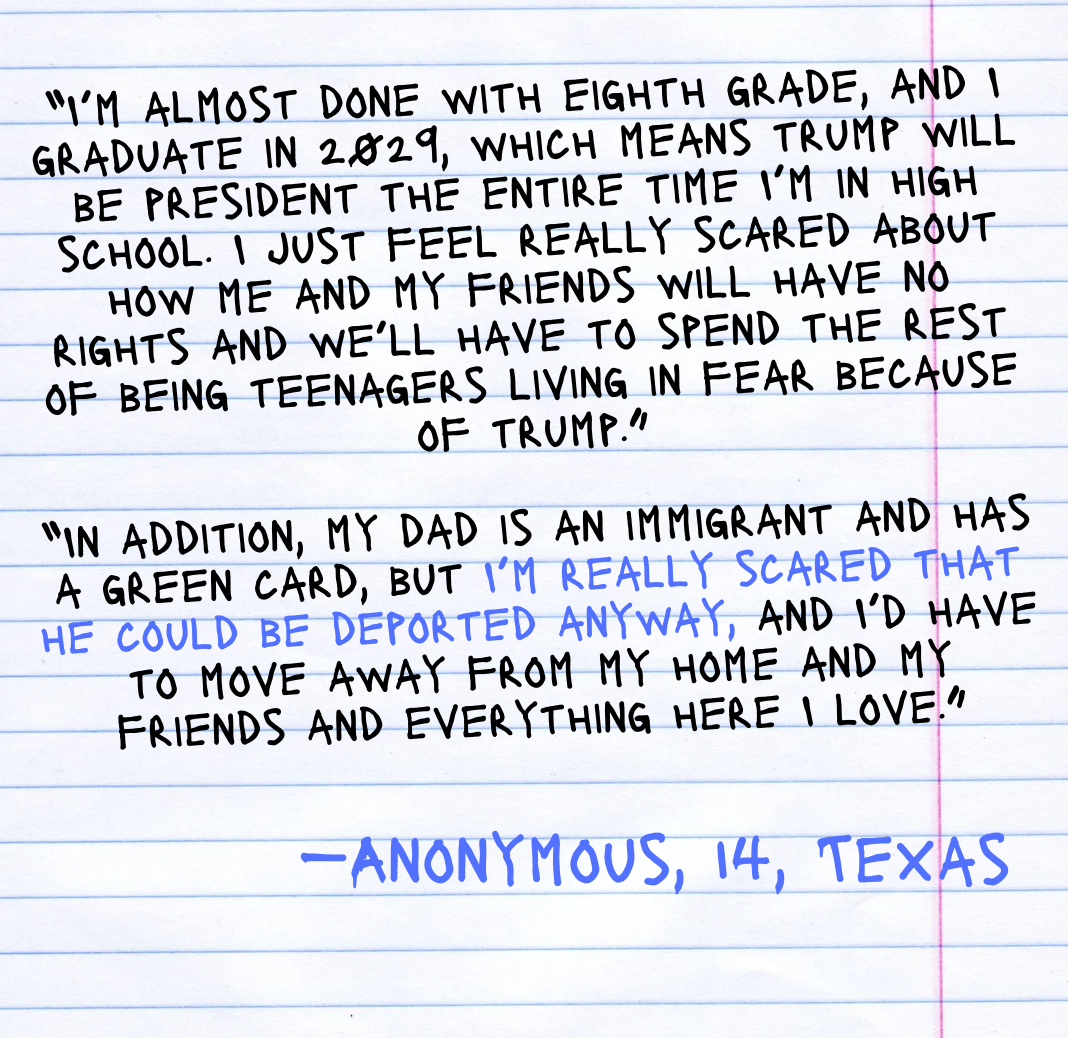 "I'M ALMOST DONE WITH EIGHTH GRADE, AND I
GRADUATE IN 2029, WHICH MEANS TRUMP WILL
BE PRESIDENT THE ENTIRE TIME I'M IN HIGH
SCHOOL. I JUST FEEL REALLY SCARED ABOUT
HOW ME AND MY FRIENDS WILL HAVE NO
RIGHTS AND WE'LL HAVE TO SPEND THE REST
OF BEING TEENAGERS LIVING IN FEAR BECAUSE
OF TRUMP."
"IN ADDITION, MY DAD IS AN IMMIGRANT AND HAS
A GREEN CARD, BUT I'M REALLY SCARED THAT
HE COULD BE DEPORTED ANYWAY, AND I'D HAVE
TO MOVE AWAY FROM MY HOME AND MY
FRIENDS AND EVERYTHING HERE I LOVE."
—ANONYMOUS, 14, TEXAS